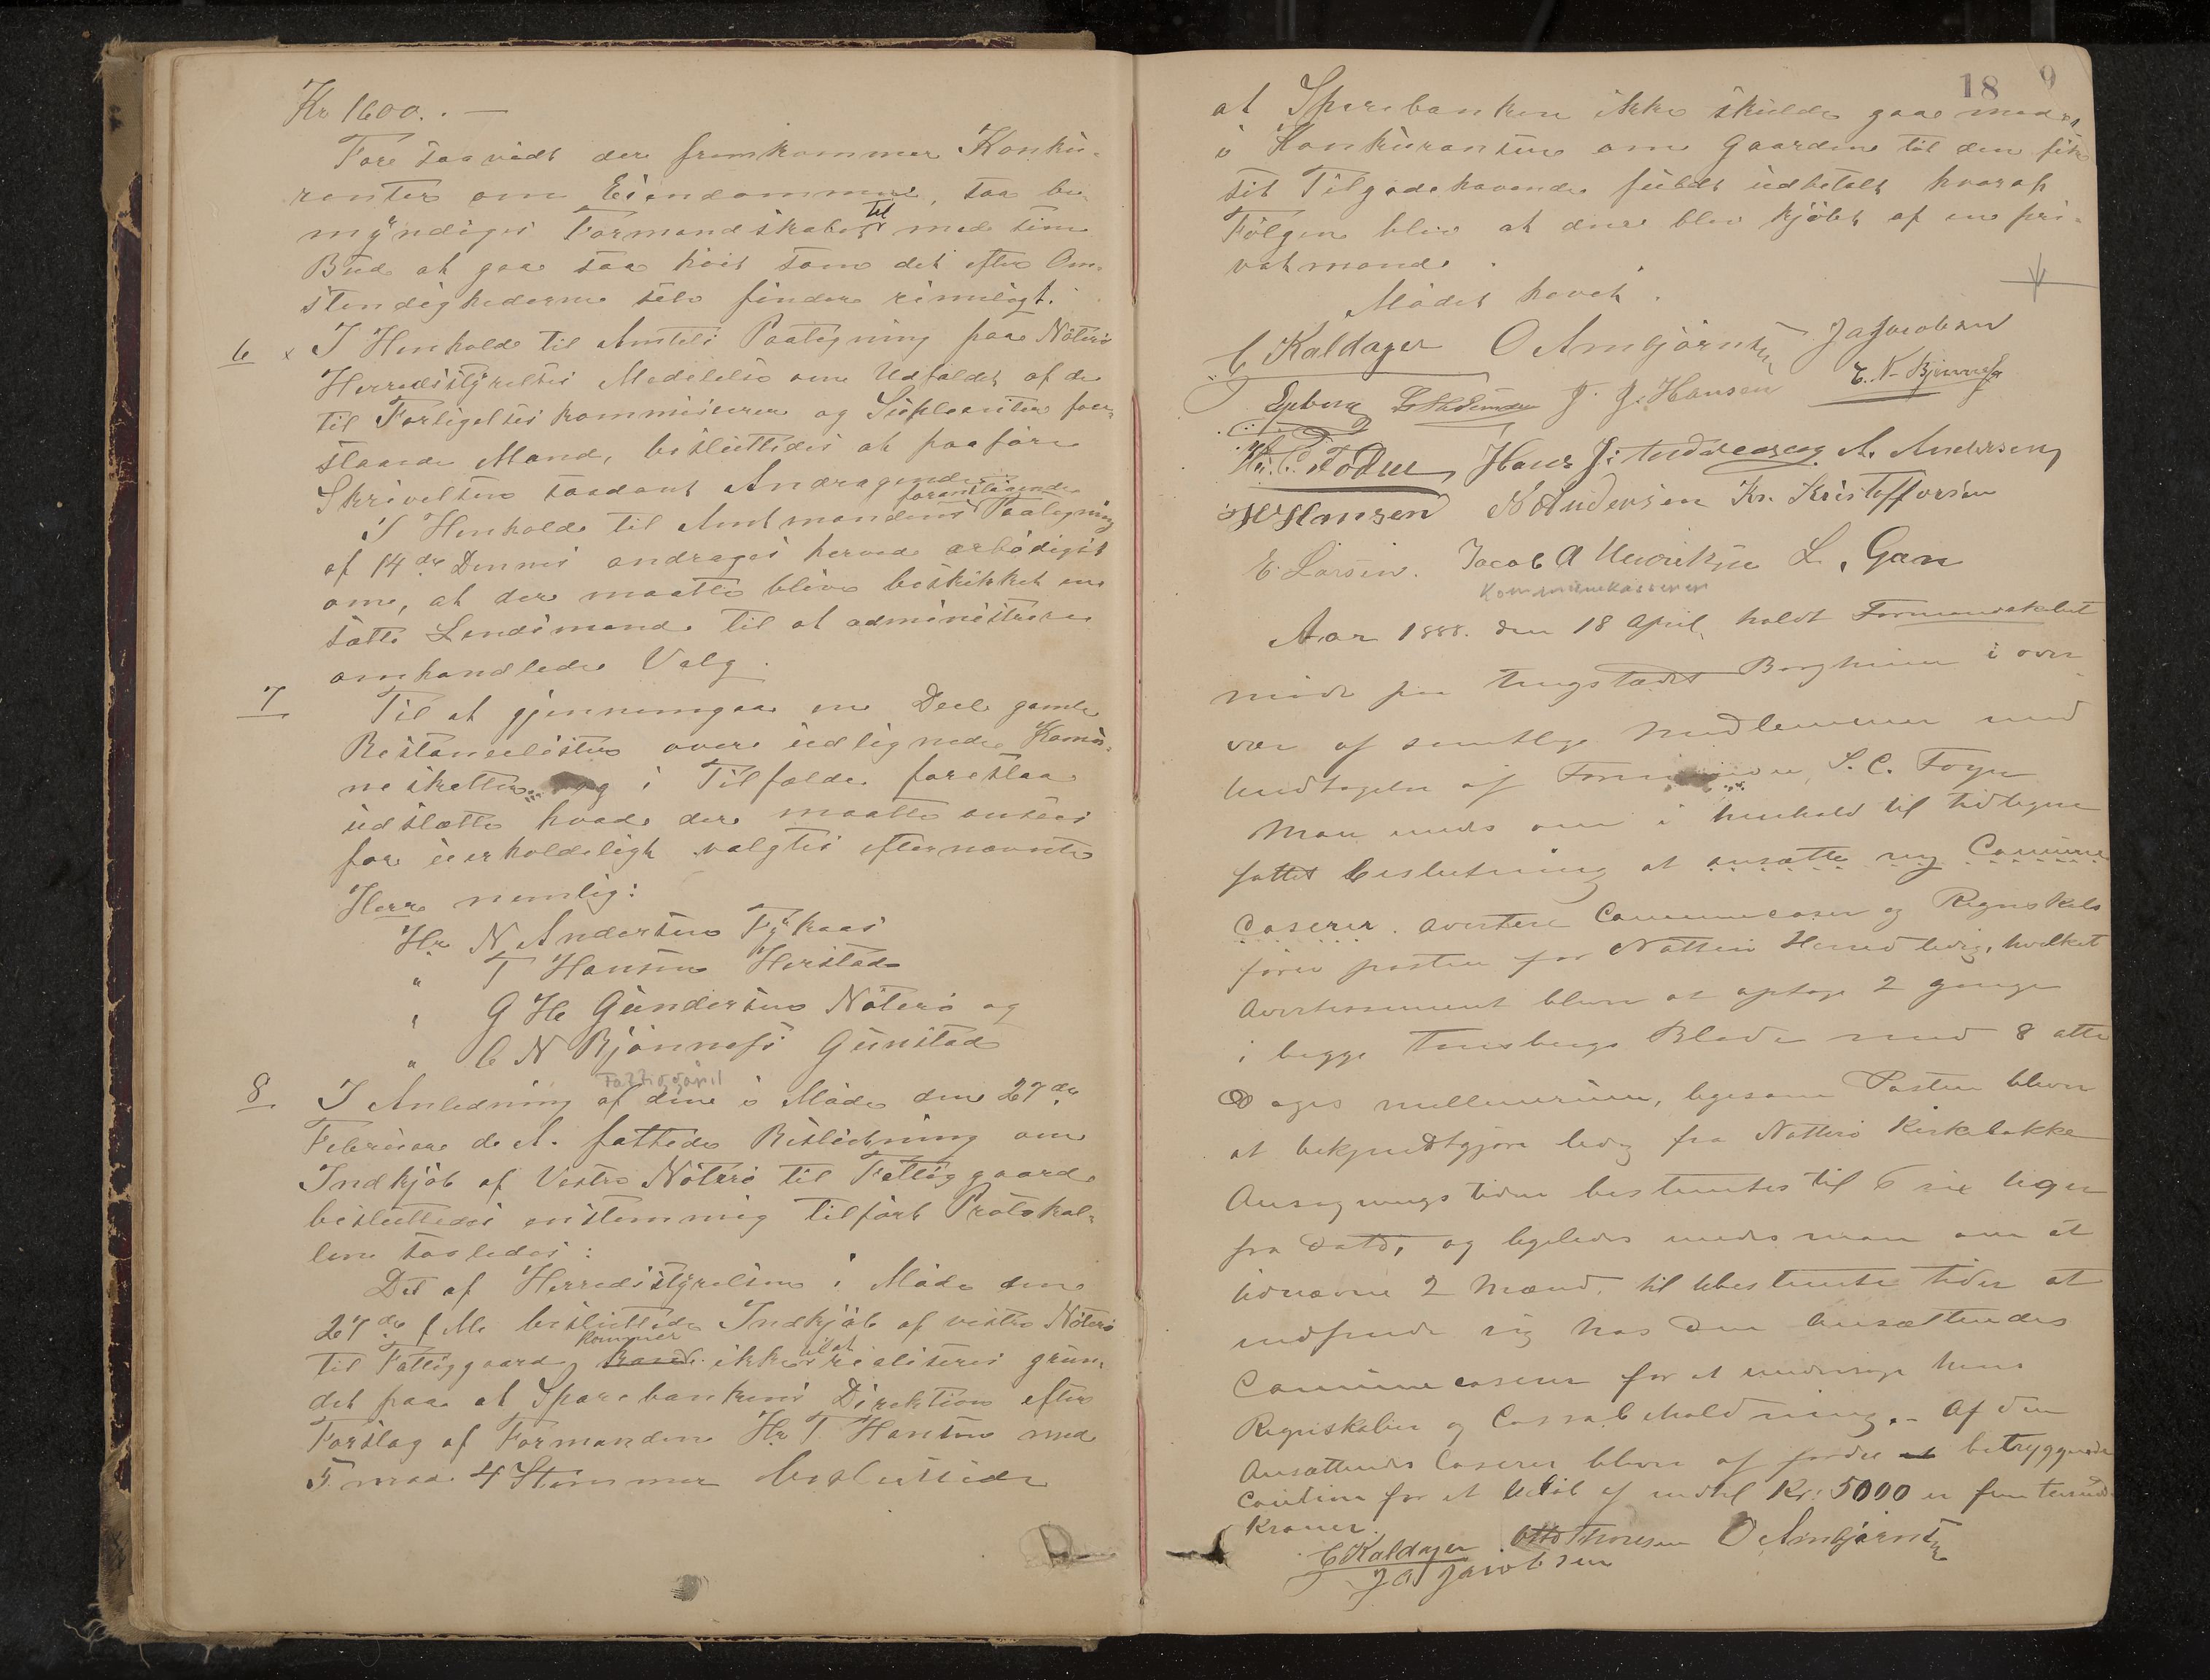 Kr 1600. . —
Fore saavidt der fremkommer Konku-
renter om Eiendommene, saa be-
myndiges Formandskabet til med sine
Bud at gaa saa høit som det efter Om-
stendighederne selv finder rimeligt.
6 x I Henhold til Amtets Paategning paa Nøterø
Herredsstyrelses Meddelelse om Udfaldet af de
til Forligelseskommisærer og Suppleanter fore-
slaaede Mænd, besluttedes at paaføre
Skrivelsen saadant Andragende:
I Henhold til Amtmandens foranstaaende Paategning
af 14de Dennes andrages herved ærbødigst
om, at der maatte blive beskikket en
satte Lendsmand til at administrere
omhandlede Valg.
7 Til at gjennemgaa en Deel gamle
Restancelister over udlignede Komu-
neskatter og i Tilfælde foreslaa
udslætte hvad der maatte ansees
for uerholdeligt valgtes efternævnte
Herre nemlig:
Hr N Andersen Tykaas
" T Hansen Herstad
" G H Gundersen Nøterø og
" C N Bjønness Gunstad
Fattiggaard
8 I Anledning af den i Møde den 27de
Februar d. A. fattede Beslutning om
Indkjøb af Vestre Nøterø til Fattiggaard
besluttedes enstemmig tilført Protokol-
len saaledes:
Det af Herredsstyrelsen i Møde den
27de f. M. besluttede Indkjøb af vestre Nøterø
til Fattiggaard kommer ikke til at realiseres grun-
det paa at Sparebankens Direktion efter
Forslag af Formanden Hr T Hansen med
5 mod 4 Stemmer besluttede
18 9
at Sparebanken ikke skulde gaa med
i Konkurransen om Gaarden til den fik
sit Tilgodehavende fuldt udbetalt hvoraf
Følgen blev at den blev kjøbt af en pri-
vatmand.
Mødet hævet.
C Kaldager O Ambjørnsen JaJacobsen
Egeberg J. J. Hansen C. N. Bjønness
Hans J: Andreasen A. Andersen
H Hansen N Andersen Kr. Kristoffersen
E. Larsen. Jacob A Henriksen L. Gan
Kommunekasserer
Aar 1888. den 18 April holdt Formandskabet
møde paa Tingstedet Borgheim i over-
vær af samtlige Medlemmer med
Undtagelse af Formanden, S. C. Foyn
Man enedes om i henhold til tidligere
fattet beslutning at ansætte ny Commune
Caserer. avertere Communecaser og Regnskabs
fører posten for Nøtterø Herred ledig, hvilket
Avertessement bliver at optage 2 gange
i begge Tønsbergs Blade med 8 otte
Dages mellemrum, ligesom Posten bliver
at bekjendtgjøre ledig fra Nøtterø Kirkebakke
Ansøgningstiden bestemtes til 6 sex uger
fra Dato, og ligeledes enedes man om at
udnævne 2 Mænd, til ubestemte tider at
indfinde sig hos den Ansættendes
Communecaserer for at undersøge hans
Regnskaber og Cassabeholdning. – Af den
Ansættende Caserer bliver at fordre betryggende
Caution for et Beløb af indtil Kr: 5000 er fem tusind
Kroner.
C Kaldager Otto Thoresen O Ambjørnsen
J A Jacobsen